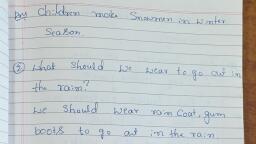 Ans Children make Snowmen in winter
Season.
② What should we wear to go out in
the rain?
We should wear rain coat, gum
boots to go out in the rain